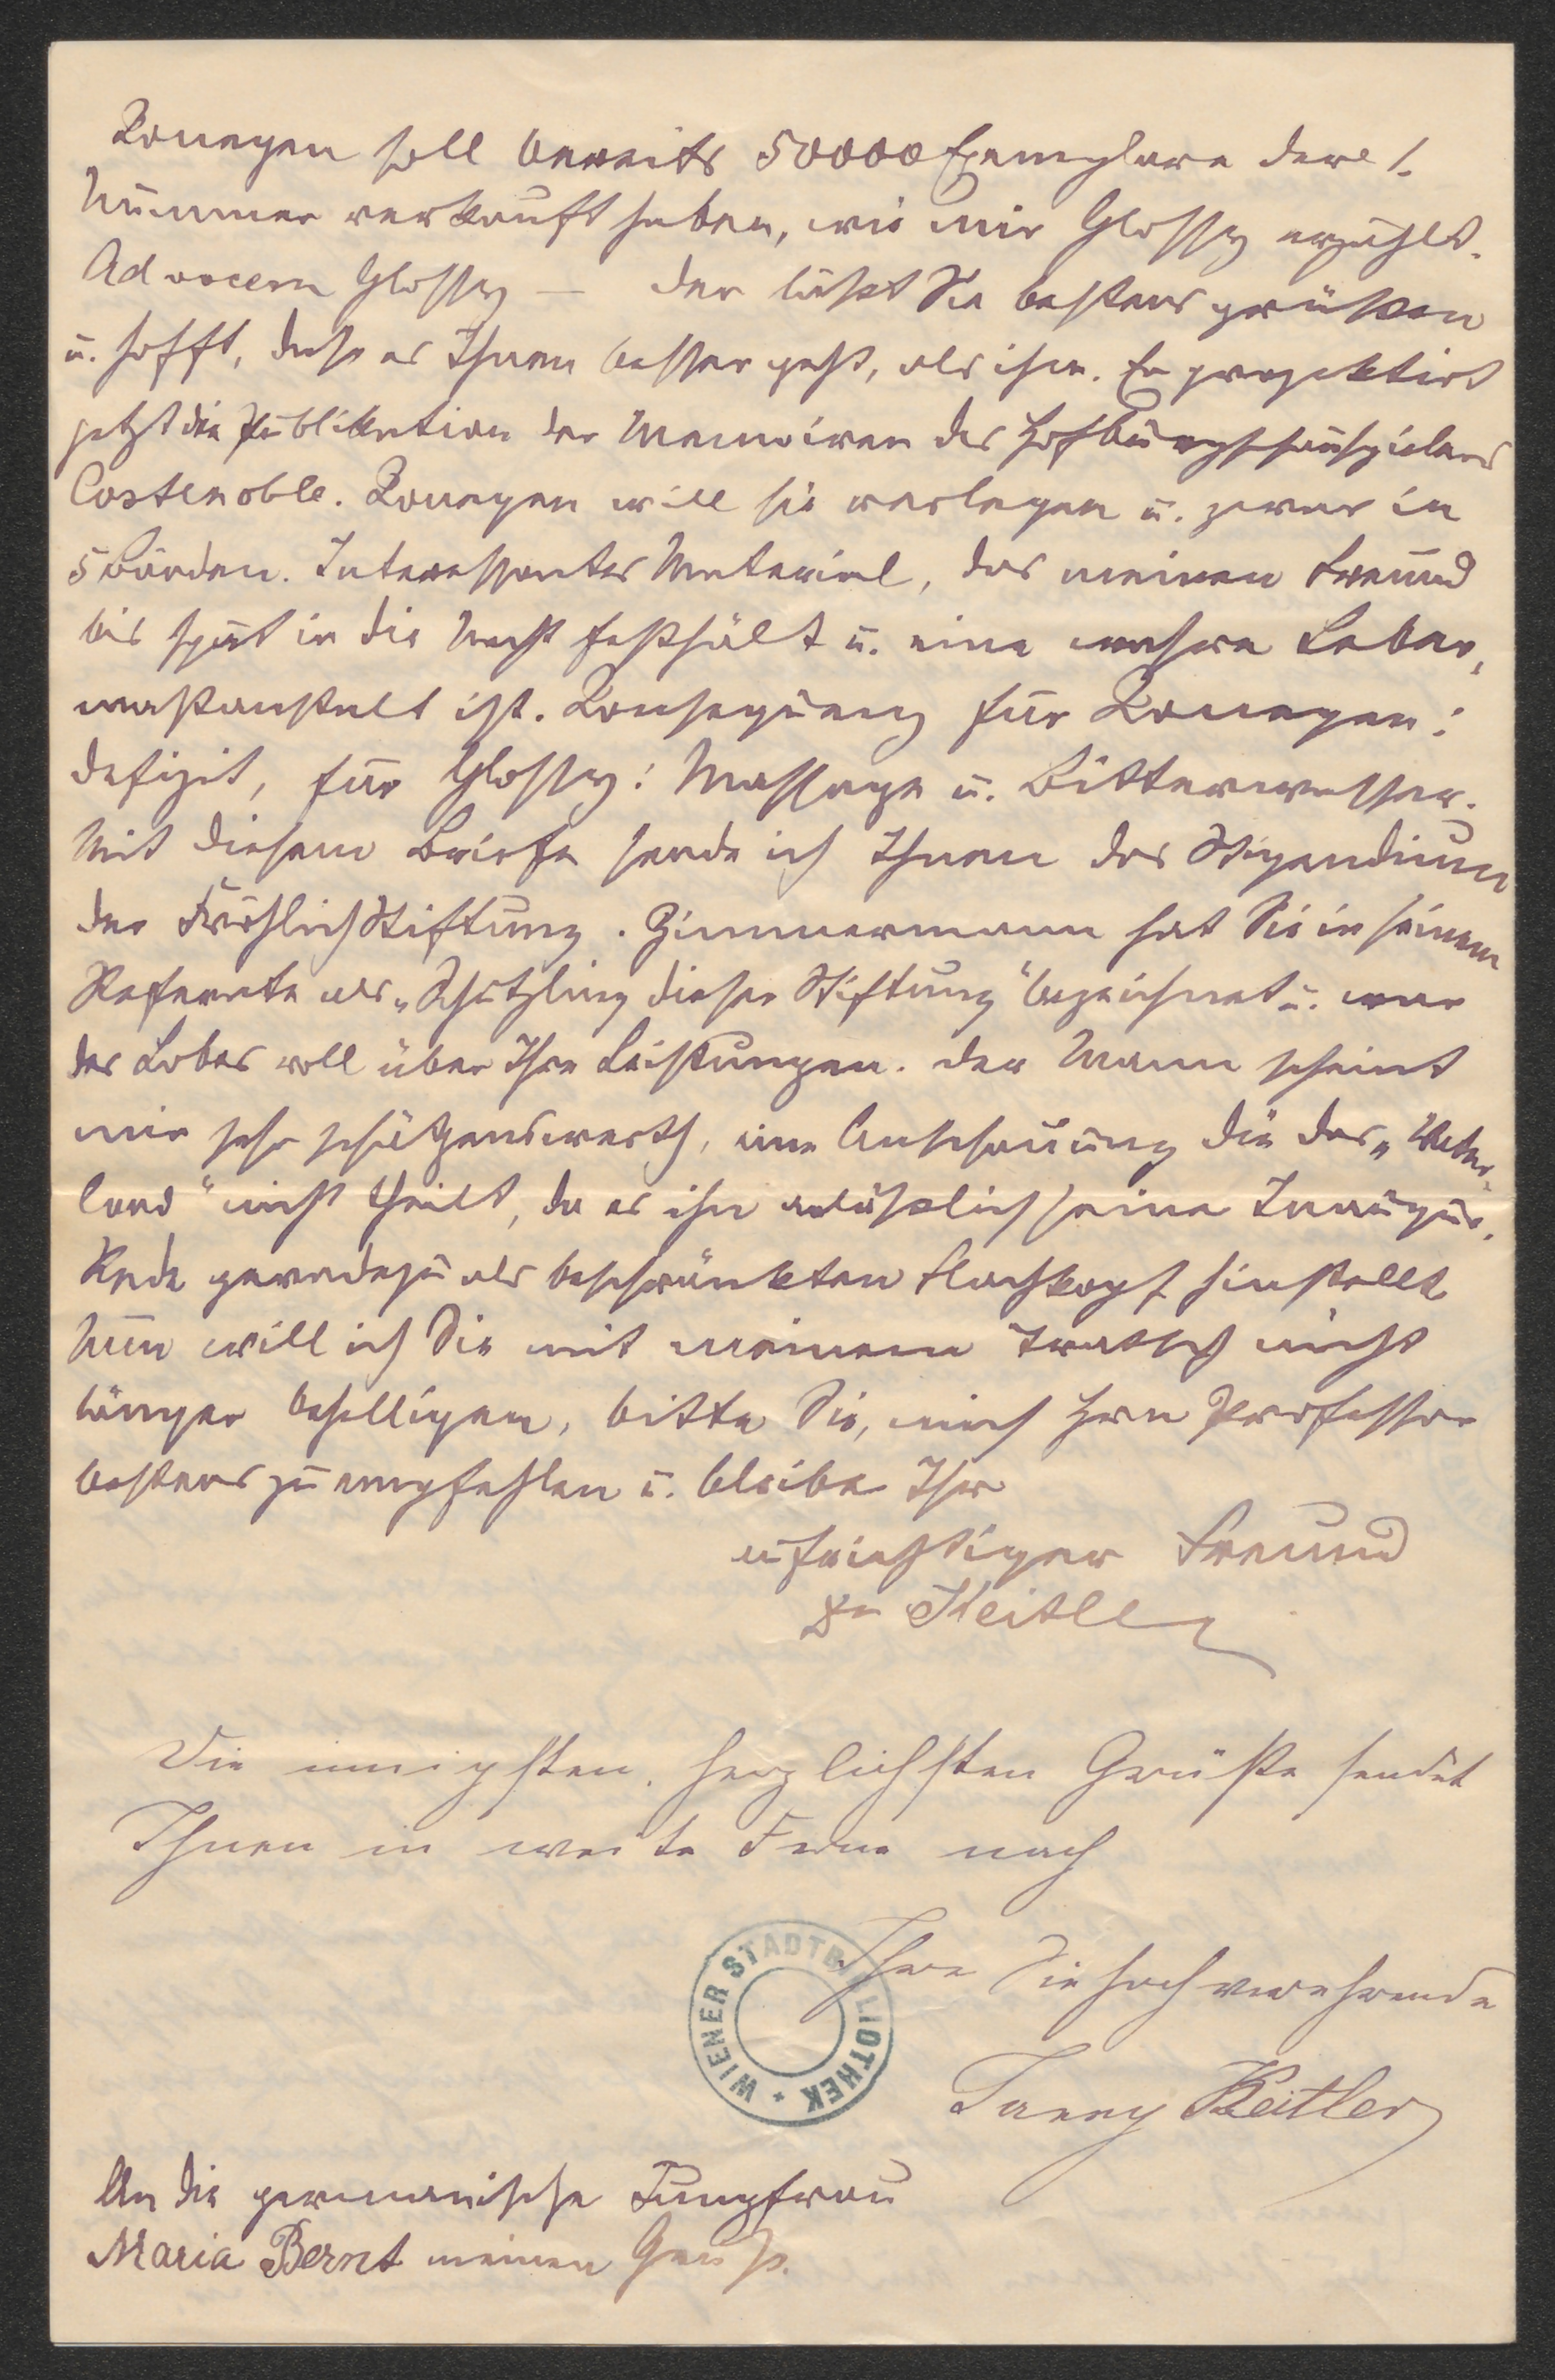 Konegen soll bereits 50000 Exemplare der 1.
Nummer verkauft haben, wie mir Glossy erzählt.
Ad vocem Glossy — der läßt Sie bestens grüßen
u. hofft, daß es Ihnen besser geht, als ihm. Er projektirt
jetzt die Publikation der Memoiren des Hofburgschauspielers
Costenoble. Konegen will sie verlegen u. zwar in
5 Bänden. Interessantes Material, das meinen Freund
bis spät in die Nacht festhält u. eine wahre Leber-
mastanstalt ist. Konsequenz für Konegen:
Defizit, für Glossy: Massage u. Bitterwasser.
Mit diesem Briefe sende ich Ihnen das Stipendium
der Fröhlichstiftung. Zimmermann hat Sie in seinem
Referate als „Schützling dieser Stiftung" bezeichnet u. war
des Lobes voll über Ihre Leistungen. Der Mann scheint
mir sehr schätzenswerth, eine Anschauung die das „Vater-
land" nicht theilt, da es ihn anläßlich seiner Inaugur.
Rede geradezu als beschränkten Flachkopf hinstellt.
Nun will ich Sie mit meinem Tratsch nicht
länger behelligen, bitte Sie, mich Hrn Professor
bestens zu empfehlen u. bleibe Ihr
aufrichtiger Freund
Dr Reitler
Die innigsten, herzlichsten Grüße sendet
Ihnen in weite Ferne nach
Ihre Sie hochverehrende
Fanny Reitler
WIENER STADTBIBLIOTHEK
An die germanische Jungfrau
Maria Bernt meinen Gruß.